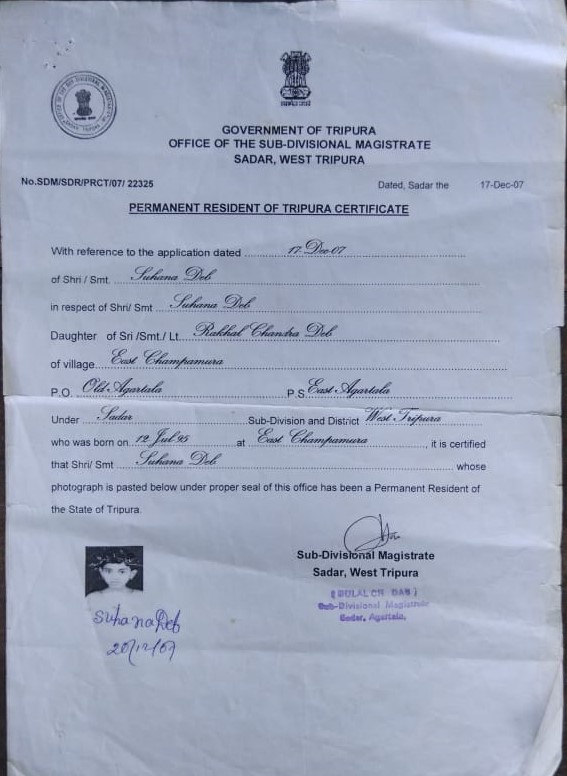 GOVERNMENT OF TRIPURA
OFFICE OF THE SUB-DIVISIONAL MAGISTRATE
SADAR, WEST TRIPURA
No.SDM/SDR/PRCT/07/ 22325 Dated, Sadar the 17-Dec-07
PERMANENT RESIDENT OF TRIPURA CERTIFICATE
With reference to the application dated 17-Dec-07
of Shri / Smt. Suhana Deb
in respect of Shri/ Smt Suhana Deb
Daughter of Sri /Smt./ Lt. Rakhal Chandra Deb
of village East Champamura
P.O. Old Agartala P.S. East Agartala
Under Sadar Sub-Division and District West Tripura
who was born on 12 Jul 95 at East Champamura, it is certified
that Shri/ Smt Suhana Deb whose
photograph is pasted below under proper seal of this office has been a Permanent Resident of
the State of Tripura.
Sub-Divisional Magistrate
Sadar, West Tripura
( DULAL CH DAS )
Sub-Divisional Magistrate
Sadar, Agartala.
Suhana Deb
20/12/07